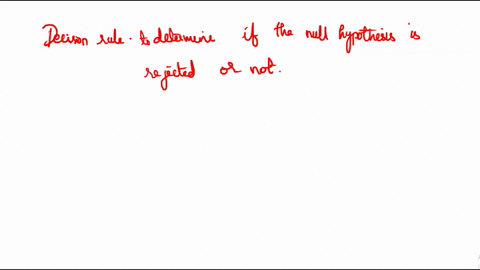 Decison rule. to determine if the null hypothesis is
rejected or not.